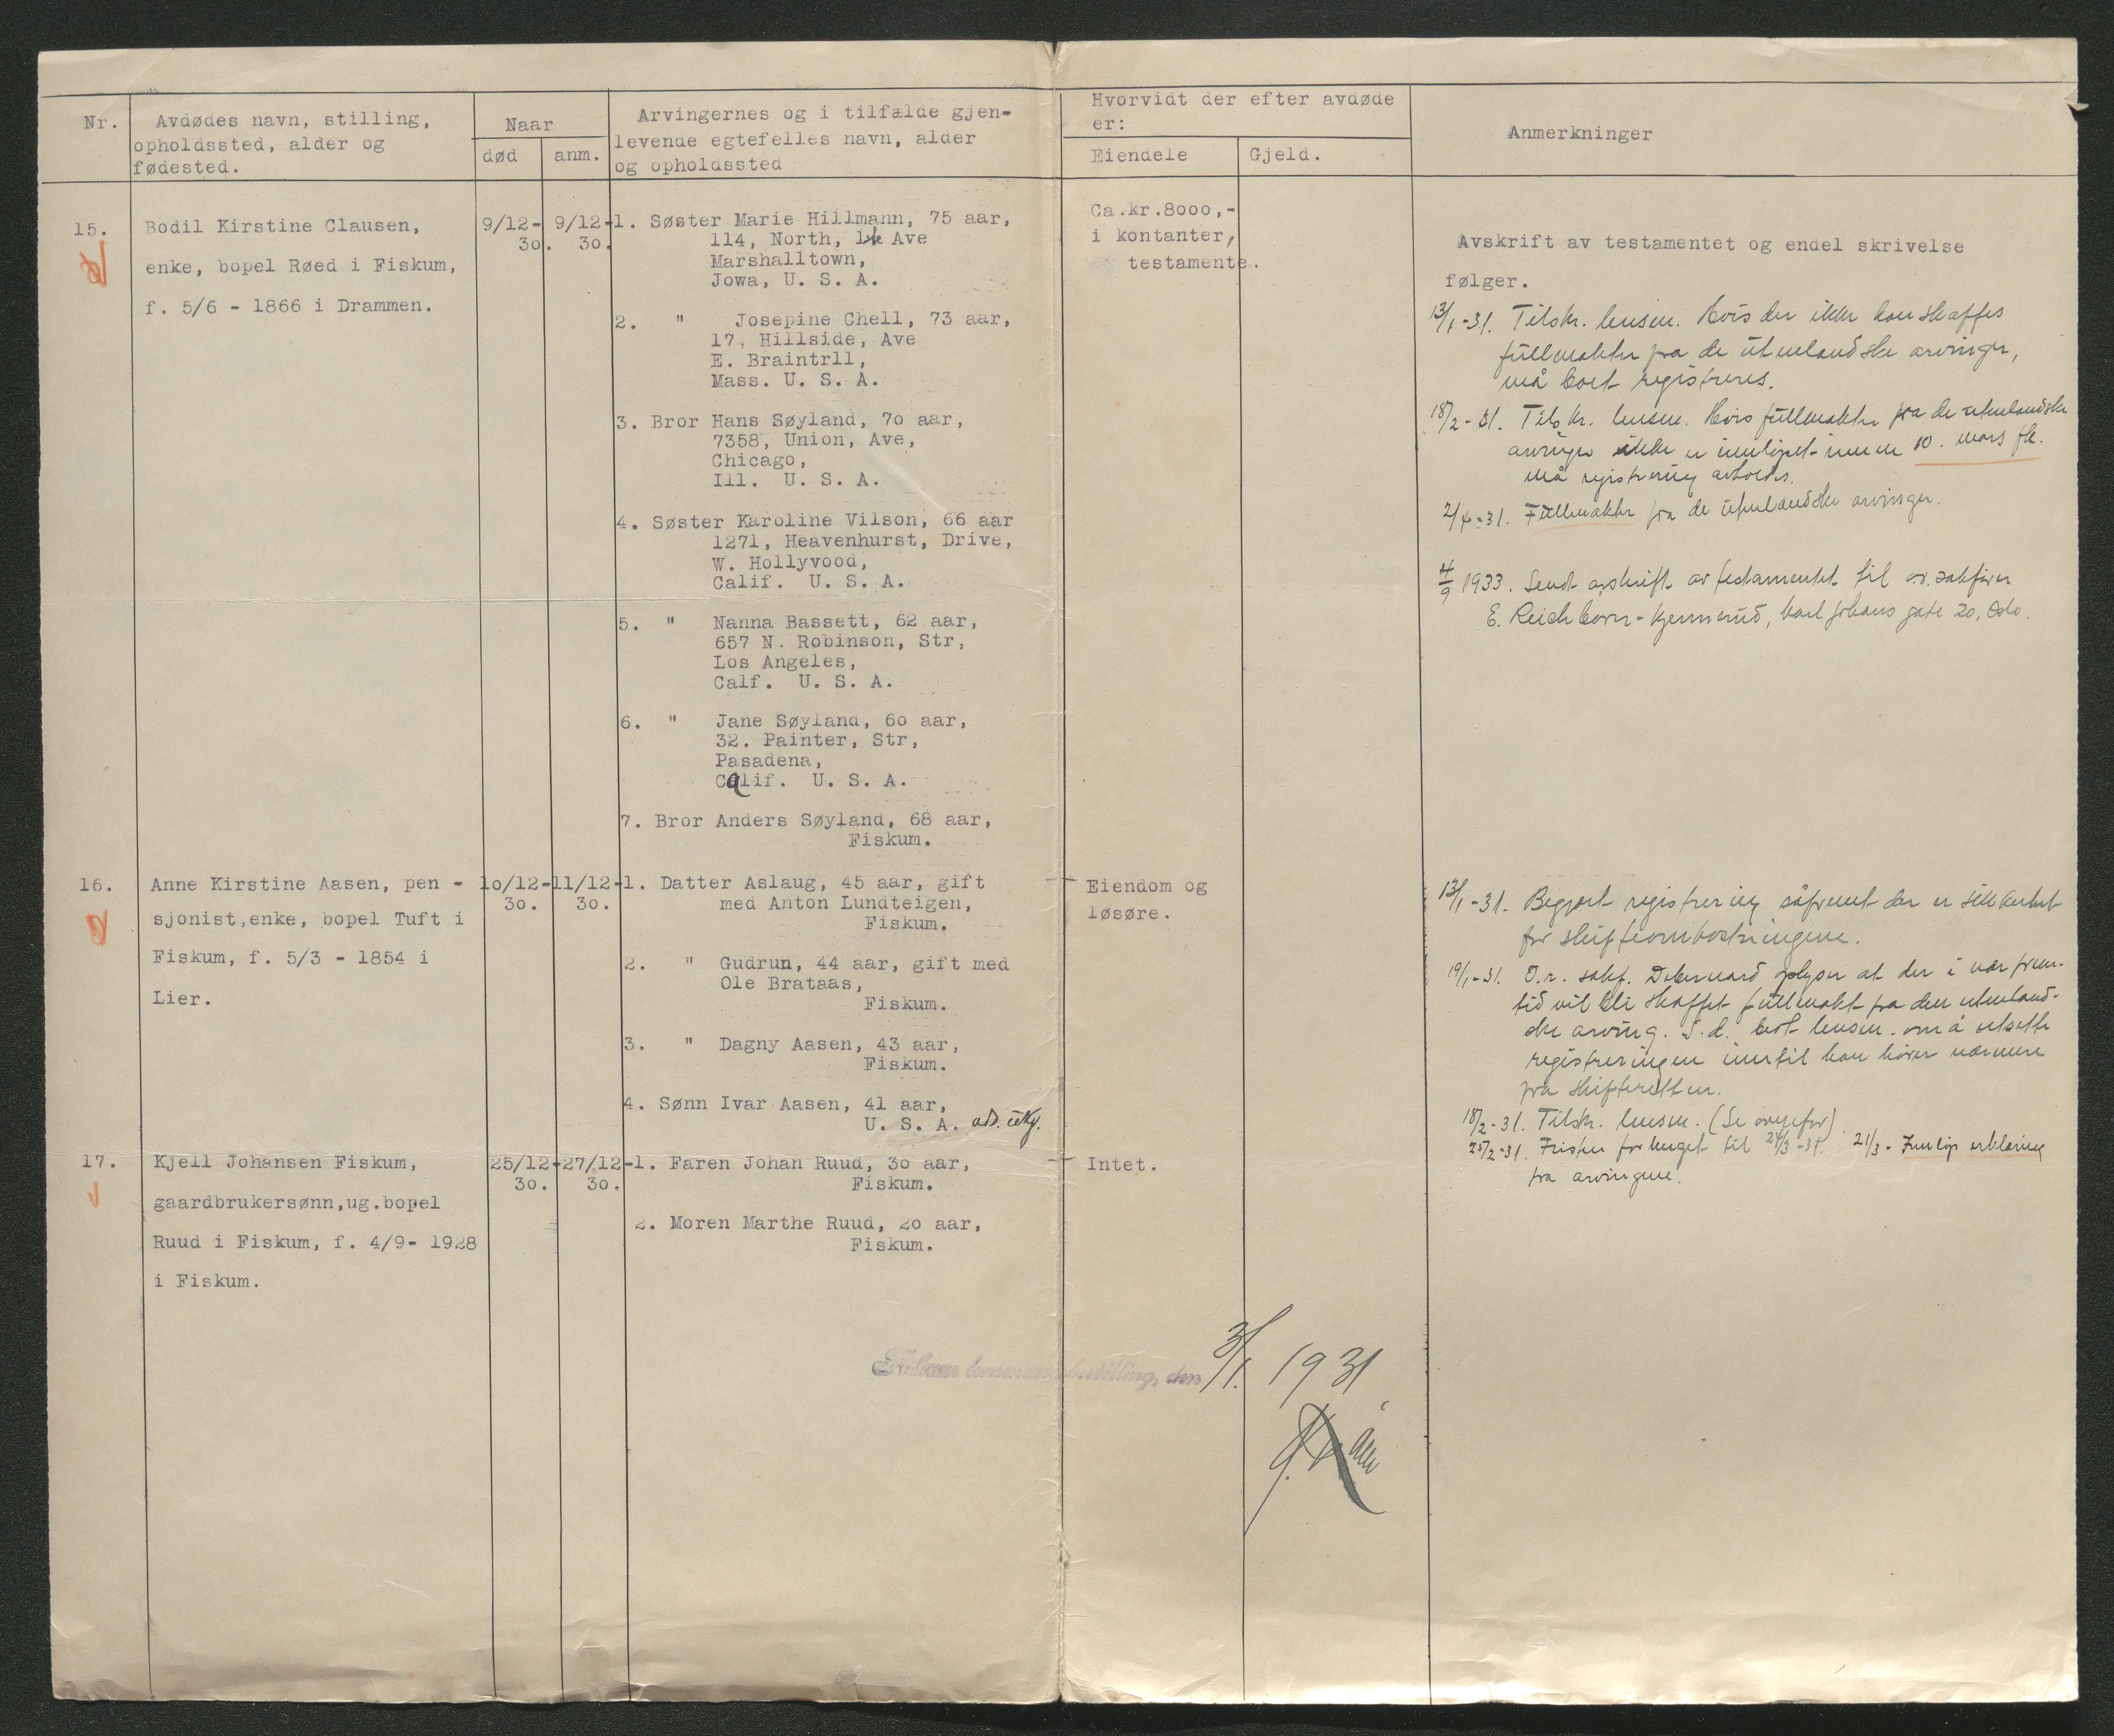 Nr.
Avdødes navn, stilling,
opholdssted, alder og
fødested.
Naar
død
anm.
Arvingernes og i tilfælde gjen-
levende egtefelles navn, alder
og opholdssted
Hvorvidt der efter avdøde
er:
Eiendele
Gjeld.
Anmerkninger
15.
Bodil Kirstine Clausen,
enke, bopel Røed i Fiskum,
f. 5/6 - 1866 i Drammen.
9/12-
30.
9/12-
30.
1. Søster Marie Hillmann, 75 aar,
114, North, Ave
Marshalltown,
Jowa, U. S. A.
2. " Josepine Chell, 73 aar,
17, Hillside, Ave
E. Braintrll,
Mass. U. S. A.
3. Bror Hans Søyland, 7o aar,
7358, Union, Ave,
Chicago,
Ill. U. S. A.
4. Søster Karoline Vilson, 66 aar
1271, Heavenhurst, Drive,
W. Hollyvood,
Calif. U. S. A.
5. " Nanna Bassett, 62 aar,
657 N. Robinson, Str,
Los Angeles,
Calf. U. S. A.
6. " Jane Søyland, 6o aar,
32. Painter, Str,
Pasadena,
Calif. U. S. A.
7. Bror Anders Søyland, 68 aar,
Fiskum.
Ca.kr.8ooo,-
i kontanter,
testamente.
Avskrift av testamentet og endel skrivelse
følger.
13/1-31. Tilskr. lensm. Hvis der ikke kan skaffes
fullmakter fra de utenlandske arvinger,
må boet registreres.
18/2-31. Tilskr. lensm. Hvis fullmakter fra de utenlandske
arvinger ikke er innløpet innen 10. mars fk.
må registrering avholdes.
2/4-31. Fullmakter fra de utenlandske arvinger.
4/9 1933. Sendt avskrift av testamentet til o.r.sakfører
E. Reichborn-Kjennerud, Karl Johans gate 20, Oslo.
16.
Anne Kirstine Aasen, pen -
sjonist,enke, bopel Tuft i
Fiskum, f. 5/3 - 1854 i
Lier.
1o/12-
3o.
11/12-
3o.
1. Datter Aslaug, 45 aar, gift
med Anton Lundteigen,
Fiskum.
2. " Gudrun, 44 aar, gift med
Ole Brataas,
Fiskum.
3. " Dagny Aasen, 43 aar,
Fiskum.
4. Sønn Ivar Aasen, 41 aar,
U. S. A.
Eiendom og
løsøre.
13/1-31. Begjært registrering såfremt der er sikkerhet
for skifteomkostningene.
19/1-31. O.r. sakf. oplyser at der i nær frem-
tid vil bli skaffet fullmakt fra den utenland-
ske arving. S.d. bedt lensm. om å utsette
registreringen inntil han hører nærmere
fra skifteretten.
18/2-31. Tilskr. lensm. (Se ovenfor).
25/2-31. Fristen forlenget til 24/3-31. 21/3- Innløp erklæring
fra arvingene.
17.
Kjell Johansen Fiskum,
gaardbrukersønn,ug.bopel
Ruud i Fiskum, f. 4/9- 1928
i Fiskum.
25/12-
3o.
27/12-
3o.
1. Faren Johan Ruud, 3o aar,
Fiskum.
2. Moren Marthe Ruud, 2o aar,
Fiskum.
Intet.
Fiskum lensmannsbestilling, den 3/1. 1931